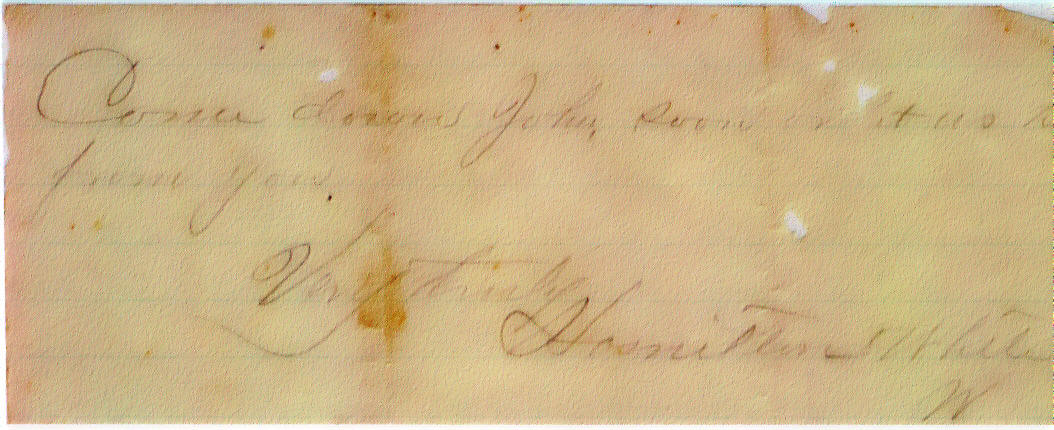 Come down John, soon or let us h
from you.
Very truly
Hamilton White
W